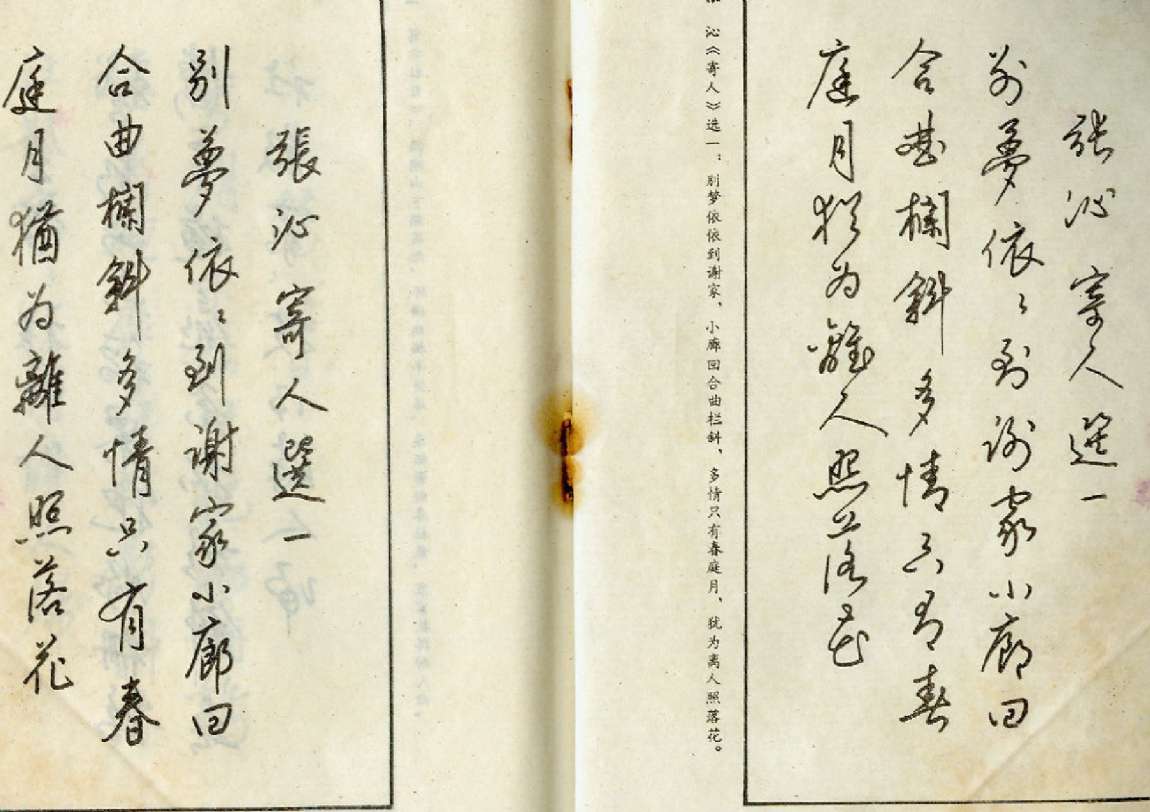 張泌寄人選一
别夢依〻到谢家小廊回
合曲欄斜多情只有春
庭月猶为離人照落花
泌《寄人》选一：别梦依依到谢家，小廊回合曲栏斜，多情只有春庭月，犹为离人照落花。
張泌寄人選一
别夢依〻到谢家小廊回
合曲欄斜多情只有春
庭月猶为離人照落花